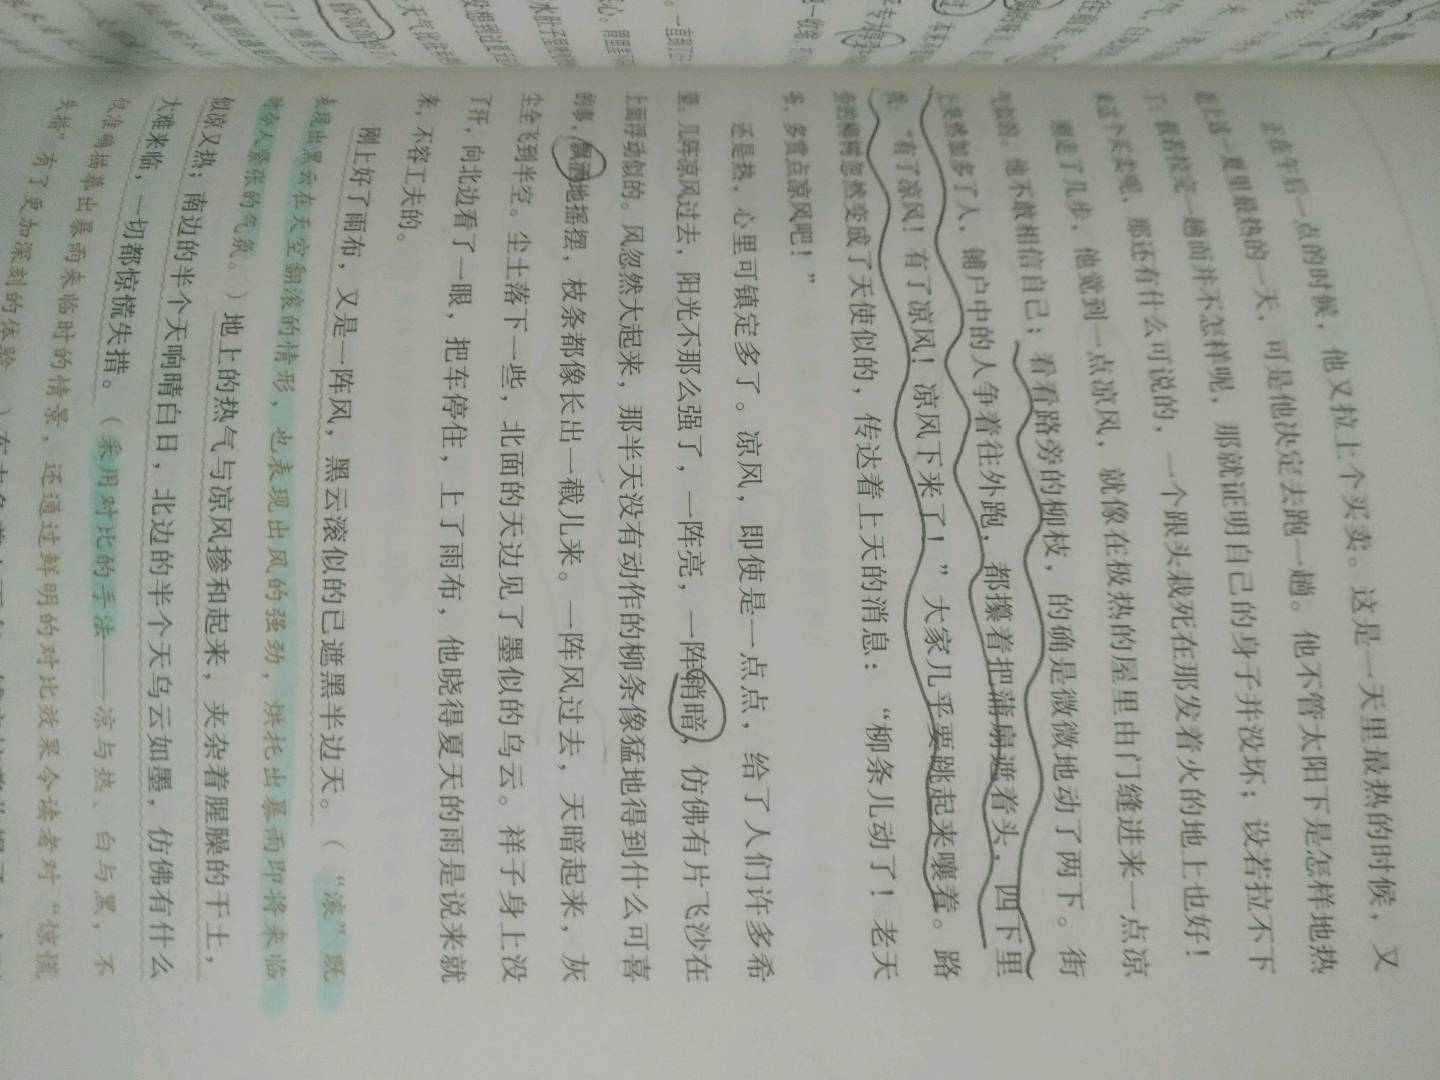 正在午后一点的时候，他又拉上个买卖。这是一天里最热的时候，又
赶上这一夏里最热的一天，可是他决定去跑一趟。他不管太阳下是怎样地热
了：假若拉完一趟而并不怎样呢，那就证明自己的身子并没坏；设若拉不下
来这个买卖呢，那还有什么可说的，一个跟头栽死在那发着火的地上也好！
刚走了几步，他觉到一点凉风，就像在极热的屋里由门缝进来一点凉
气似的。他不敢相信自己；看看路旁的柳枝，的确是微微地动了两下。街
上突然加多了人，铺户中的人争着往外跑，都攥着把蒲扇遮着头，四下里
找：“有了凉风！有了凉风！凉风下来了！”大家几乎要跳起来嚷着。路
旁的柳树忽然变成了天使似的，传达着上天的消息：“柳条儿动了！老天
爷，多赏点凉风吧！”
还是热，心里可镇定多了。凉风，即使是一点点，给了人们许多希
望。几阵凉风过去，阳光不那么强了，一阵亮，一阵稍暗，仿佛有片飞沙在
上面浮动似的。风忽然大起来，那半天没有动作的柳条像猛地得到什么可喜
的事，飘洒地摇摆，枝条都像长出一截儿来。一阵风过去，天暗起来，灰
尘全飞到半空。尘土落下一些，北面的天边见了墨似的乌云。祥子身上没
了汗，向北边看了一眼，把车停住，上了雨布，他晓得夏天的雨是说来就
来，不容工夫的。
刚上好了雨布，又是一阵风，黑云滚似的已遮黑半边天。（“滚”既
表现出黑云在天空翻滚的情形，也表现出风的强劲，烘托出暴雨即将来临
时令人紧张的气氛。）地上的热气与凉风掺和起来，夹杂着腥臊的干土，
似凉又热；南边的半个天响晴白日，北边的半个天乌云如墨，仿佛有什么
大难来临，一切都惊慌失措。（采用对比的手法——凉与热、白与黑，不
仅准确描摹出暴雨来临时的情景，还通过鲜明的对比效果令读者对“惊慌
失措”有了更加深刻的体验